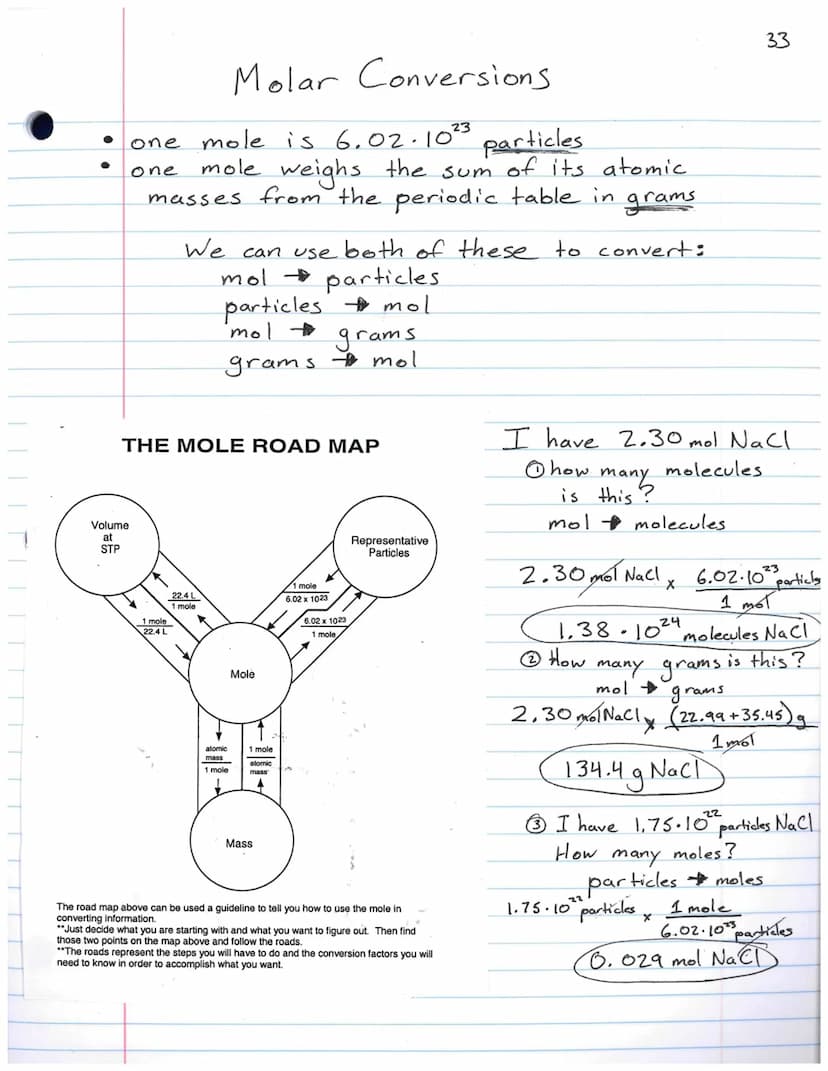 33
Molar Conversions
• one mole is 6.02·10²³ particles
• one mole weighs the sum of its atomic
masses from the periodic table in grams
We can use both of these to convert:
mol → particles
particles → mol
mol → grams
grams → mol
THE MOLE ROAD MAP
Volume
at
STP
Representative
Particles
22.4 L
1 mole
1 mole
22.4 L
1 mole
6.02 x 10²³
6.02 x 10²³
1 mole
Mole
atomic
mass
1 mole
1 mole
atomic
mass
Mass
The road map above can be used a guideline to tell you how to use the mole in
converting information.
**Just decide what you are starting with and what you want to figure out. Then find
those two points on the map above and follow the roads.
**The roads represent the steps you will have to do and the conversion factors you will
need to know in order to accomplish what you want.
I have 2.30 mol NaCl
① how many molecules
is this?
mol → molecules
2.30 mol NaCl x 6.02·10²³ particles
1 mol
1.38 · 10²⁴ molecules NaCl
② How many grams is this?
mol → grams
2.30 mol NaCl x (22.99+35.45) g
1 mol
134.4 g NaCl
③ I have 1.75·10²² particles NaCl
How many moles?
particles → moles
1.75·10²² particles x 1 mole
6.02·10²³ particles
0.029 mol NaCl